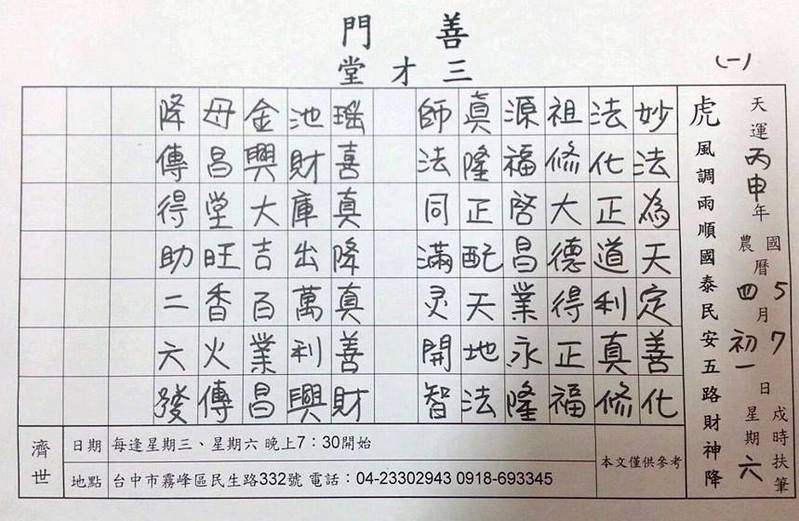 善門
三才堂
(一)
天運丙申年 國農曆 5四 月 7初一 日 戌時扶筆 星期六
虎 風調雨順國泰民安五路財神降
妙法為天定善化
法化正道利真修
祖修大德得正福
源福啓昌業永隆
眞隆正配天地法
師法同滿灵開智
瑶喜真降真善財
池財庫出萬利興
金興大吉百業昌
母昌堂旺香火傳
降傳得助二六發
本文僅供參考
濟世
日期 每逢星期三、星期六 晚上7：30開始
地點 台中市霧峰區民生路332號 電話：04-23302943 0918-693345